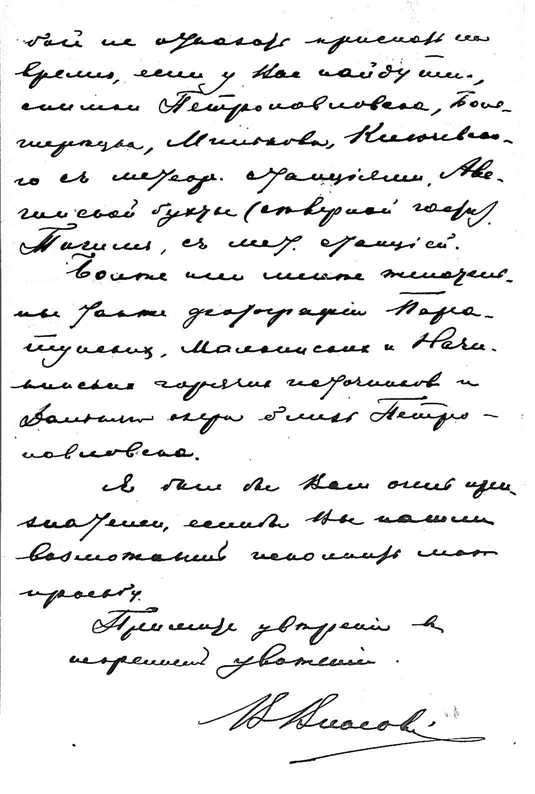 бой не отказать прислать на
время, если у Вас найдутся,
снимки Петропавловска, Боль-
шерецка, Мильково, Ключевско-
го съ метеор. станціями, Ава-
чинской бухты (северной части).
Тигиля, съ мет. станціей.
Более или менее желатель-
ны также фотографіи Пара-
тунских, Малкинских и Начи-
кинских горячих источников и
Дальняго озера близь Петро-
павловска.
Я был бы Вам очень при-
знателен, если бы Вы нашли
возможным исполнить мою
просьбу.
Примите уверений в
искренней уважении.
В Власовъ